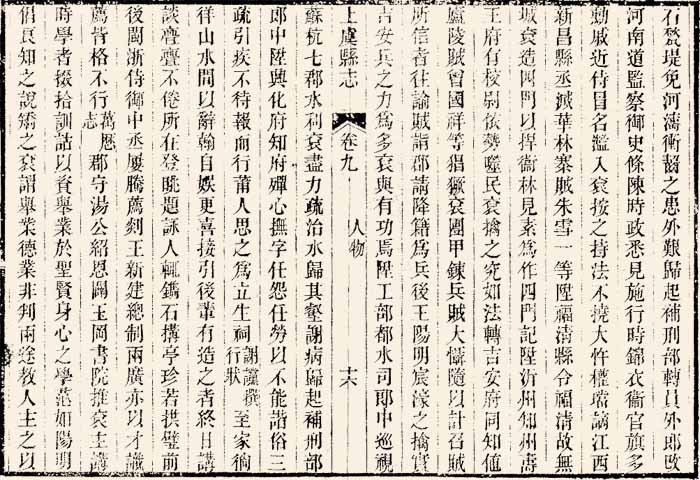 石甃堤免河濤衝齧之患外艱歸起補刑部轉員外郎改
河南道監察御史條陳時政悉見施行時錦衣衛官旗多
勳戚近侍冒名濫入袞按之持法不撓大忤權璫謫江西
新昌縣丞滅華林寨賊朱雪一等陞福清縣令福清故無
城袞造四門以捍衞林見素為作四門記陞沂州知州壽
王府有校尉依勢噬民袞擒之究如法轉吉安府同知值
廬陵賊曾國祥等猖獗袞團甲鍊兵賊大懾隨以計召賊
所信者往諭賊詣郡請降籍為兵後王陽明宸濠之擒實
吉安兵之力為多袞與有功焉陞工部都水司郎中巡視
上虞縣志 卷九 人物 十六
蘇杭七郡水利袞盡力疏治水歸其壑謝病歸起補刑部
郎中陞興化府知府殫心撫字任怨任勞以不能諧俗三
疏引疾不待報而行莆人思之為立生祠謝瑾撰行狀 至家徜
徉山水間以辭翰自娛更喜接引後輩有造之者終日講
談亹亹不倦所在登眺題詠人輒鐫石搆亭珍若拱璧前
後閩浙侍御中丞屢騰薦剡王新建總制兩廣亦以才識
薦皆格不行萬曆志 郡守湯公紹恩闢玉岡書院推袞主講
時學者掇拾訓詁以資舉業於聖賢身心之學茫如陽明
倡良知之說矯之袞謂舉業德業非判兩途教人主之以